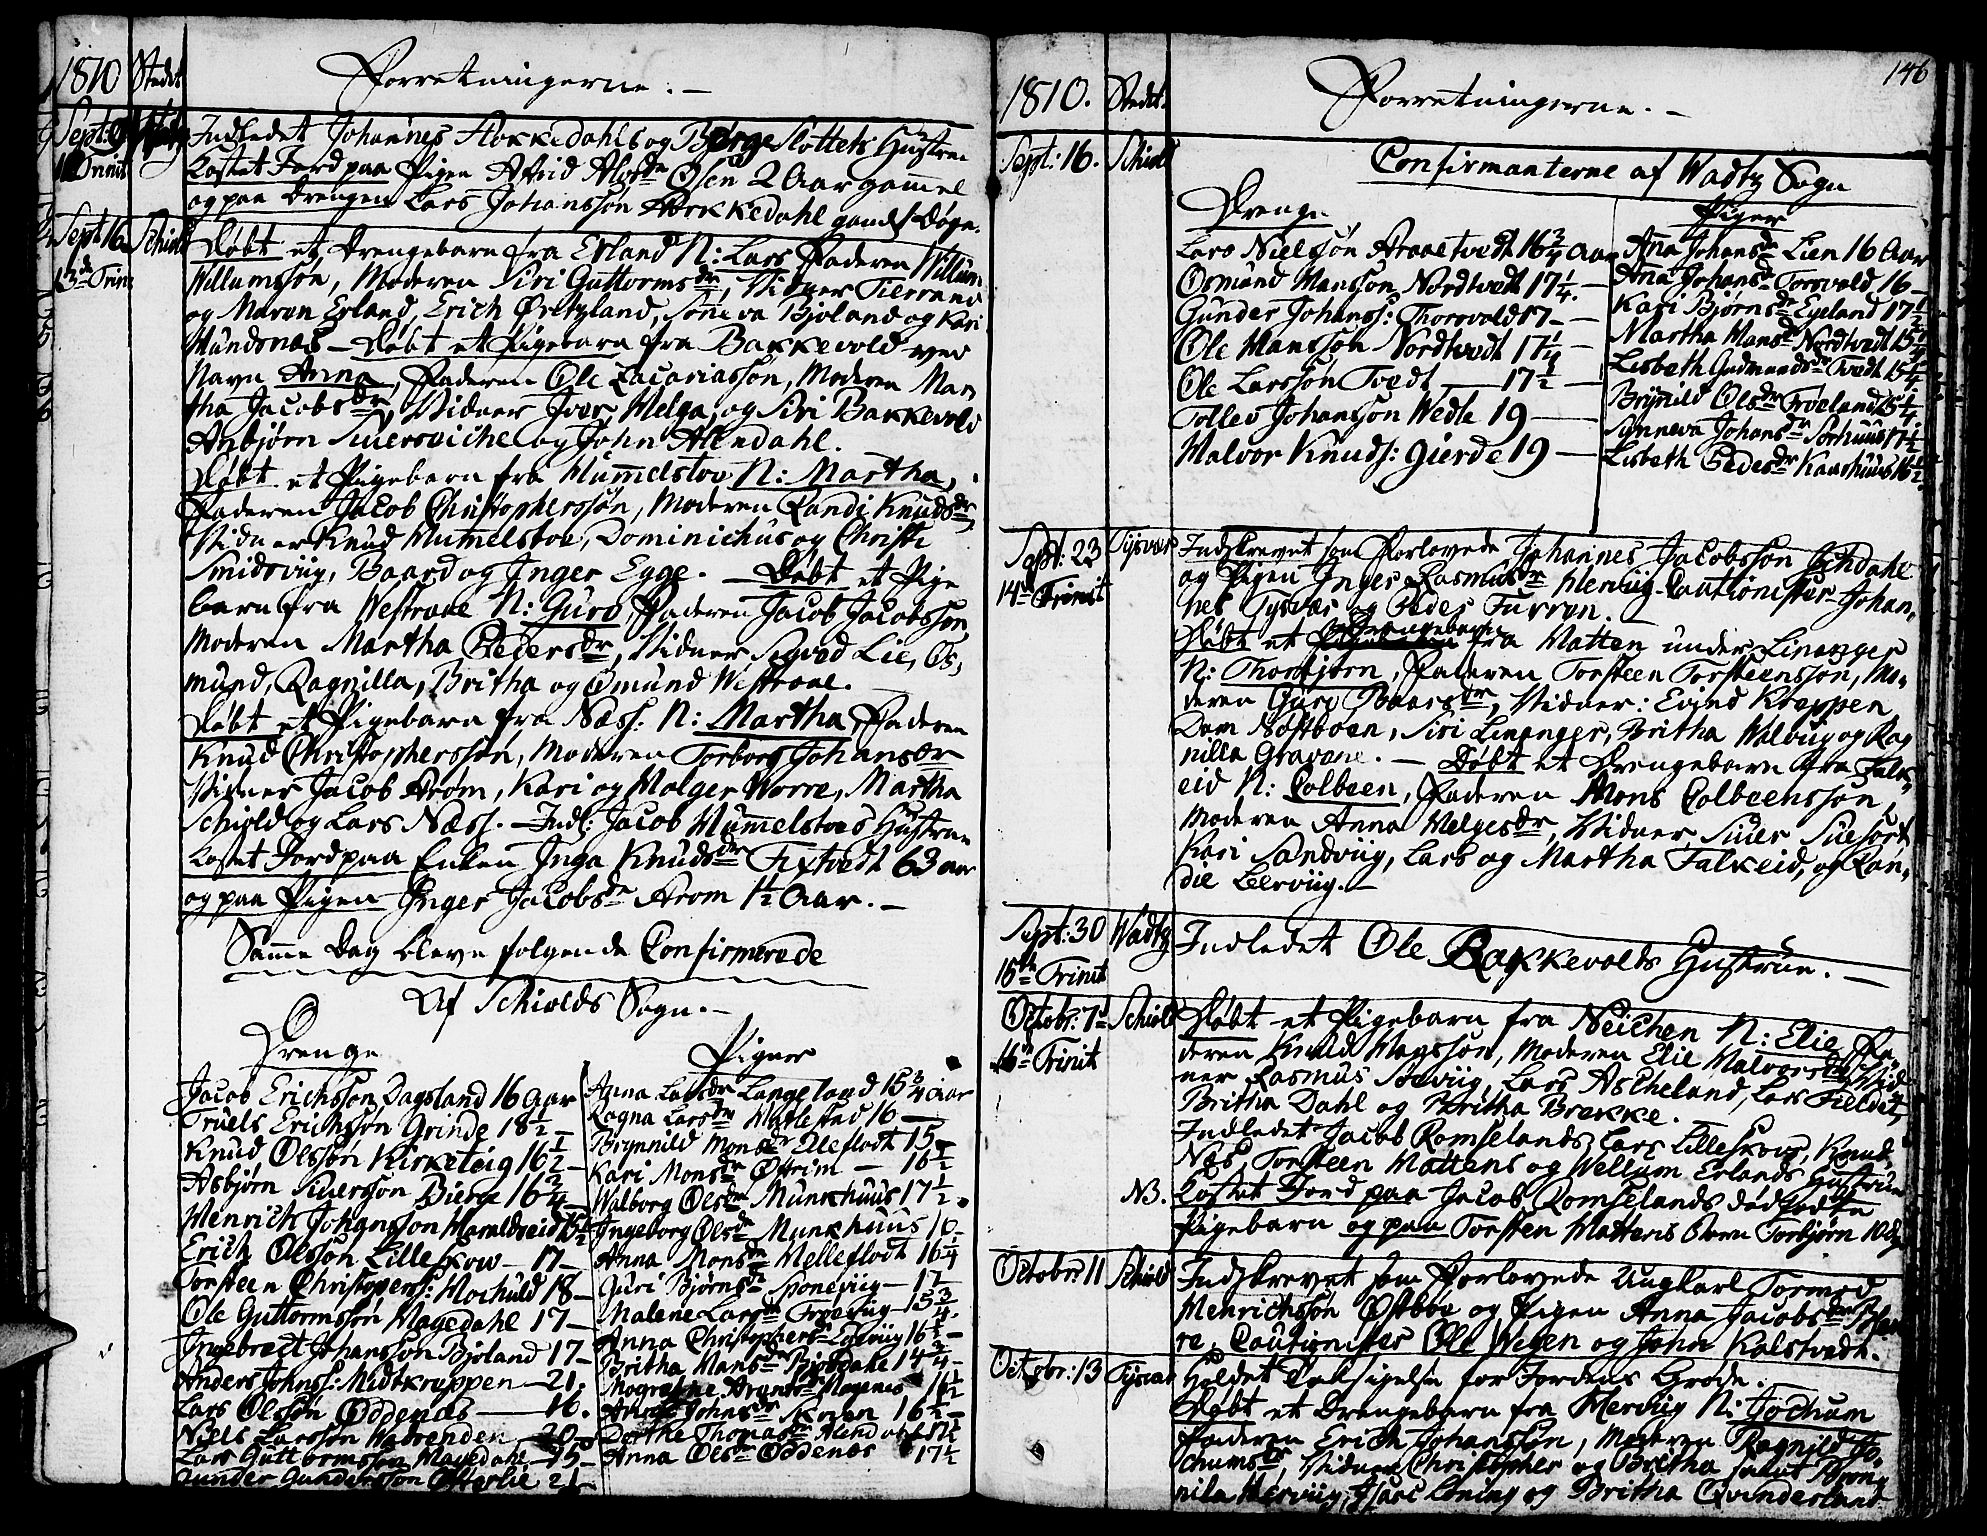 1810 Stedet Forretningerne. —
Sept: 9
Indledet Johannes Stokkedahls og Børge Slottets Hustrue
Trinit
Kastet Jord paa Pigen Astrid Alvsdr Osen 2 Aar gammel
og paa Drengen Lars Johansson Stokkedahl
Sept 16 Schiold Døbt et Drengebarn fra Erland N: Lars Faderen Willum
13de Trin Willumssøn, Moderen Siri Guttormsdr, Vidner
og Maren Erland, Erich Øvretzland, Synneva Bjoland og Kari
Hundsnæs — Døbt et Pigebarn fra Bakkevold ved
Navn Anna, Faderen Ole Zacariassøn, Moderen Mar
tha Jacobsdr, Vidner Iver, Helga, og Siri Bakkevold
Anbjørn og John Allendahl.
Døbt et Pigebarn fra Hummelstov N: Martha,
Faderen Jacob Christopherssøn, Moderen Randi Knudsdr,
Vidner Knud Hummelstoe, Dominichus og Christi
Smidsviig, Baard og Inger Egge. — Døbt et Pige
barn fra Westraae N: Guro, Faderen Jacob Jacobssøn,
Moderen Martha Pedersdr, Vidner Sigvod Lie, Os,
mund, Ragnilla, Britha og Omund Westraae.
Døbt et Pigebarn fra Næss. N: Martha, Faderen
Knud Christopherssøn, Moderen Torborg Johansdr
Vidner Jacob Arom, Kari og Holger Worre, Martha
Schiold og Lars Næss. — Indl: Jacob Hummelstoes Hustrue
Kastet Jord paa Enken Inga Knudsdr Tixtvedt 63 aar
og paa Pigen Inger Jacobsdr Arom 1½ Aar. —
Samme Dag bleve følgende Confirmerede
Af Schiolds Sogn. —
Drenge Piger
Jacob Erichssøn Dagsland 16 Aar
Truels Erichssøn Grinde 18½ —
Knud Olssøn Kirketeig 16½
Asbjørn Siverssøn Bierge 16¾
Henrich Johanssøn Haraldseid 15½
Erich Olssøn Lilleskow — 17 —
Torsteen Christopers: Mochuld 18 —
Ole Guttormssøn Hagedahl 17 —
Ingebrect Johanssøn Bjoland 17 —
Anders Johnss: Midtkroppen — 21.
Lars Olssøn Øddenæs — 16.
Niels Larssøn — 20 —
Lars Guttormssøn Hagedahl — 15 —
Gunder Gunderssøn Østerlie 21 —
Anna Larsdr Langeland 15¾ aar
Ragna Larsdr Hatlestad 16 —
Brynnild Monsdr Elleflodt 15 —
Kari Monsdr Østrim — 16½
Walborg Olsdr Munkhuus 17½
Ingeborg Olsdr Munkhuus 16.
Anna Monsdr Helleflodt 16¼
Guri Bjørnsdr Sponeviig — 17 —
Malene Larsdr Troeviig — 15¾
Anna Christophersdr 16½ —
Britha Hansdr Bjordahl 14¾ —
16½
Johnsdr Skoven 16½ —
Dorthe Thomasdr Alendahl 17½
Anna Olsdr Øddenæs 17½
146
1810. Stedet. Forretningerne. —
Sept: 16. Schiold Confirmanterne af Wadtz Sogn
Drenge Piger
Lars Nielssøn Araaetvedt 16¾ Aar
Osmund Hanssøn Nordtvedt 17¼. —
Gunder Johanss: Thorsvold 17 — —
Ole Hanssøn Nordtvedt 17¼ —
Ole Larssøn Tvedt — 17½ —
Tollev Johanssøn Wedle 19 —
Halvor Knuds: Gierde 19 —
Ana Johansdr Lien 16 Aar
Ana Johansdr Torsvold 16 —
Kari Bjørnsdr Eyeland 17½
Martha Hansdr Nordtvedt 15¼
Lisbeth Gudmundsdr Tvedt 15¼
Brynild Olsdr Froeland 15¼
Synneva Johansdr Sorhuus 17½
Lisbeth Pedersdr Kaashuus 16½
Sept: 23 Tysvær Indskrevet som Forlovede Johannes Jacobssøn Lihdahl
14de Trinit og Pigen Inger Rasmusdr Herviig. Cautionister Johan,
nes Tysvær og Peder Furren.
Døbt et Drengebarn fra Hatten under Linanger
N: Thorbjørn, Faderen Torsteen Torsteenssøn, Mo,
deren Guri Baarsdr, Vidner: Eivind Kroppen
Dom Nostboen, Siri Linanger, Britha Halviig og Rag
nilla Gravane. — Døbt et Drengebarn fra Falk,
eid N: Colbeen, Faderen Mons Colbeenssøn,
Moderen Anna Helgesdr, Vidner Siver
Kari Sandviig, Lars og Martha Falkeid, og Ran,
die Leerviig. —
Sept: 30 Wadtz Indledet Ole Bakkevolds Hustrue. —
15de Trinit
Octobr: 7d Schiold Døbt et Pigebarn fra Neichen N: Elie, Fa,
16de Trinit deren Knuld Hagssøn, Moderen Elie Halvorsdr, Vid
ner Rasmus, Lars Ascheland, Lars Fieldet,
Britha Dahl og Britha Brekke.
Indledet Jacob Romselands, Lars Lilleskows, Knud
Næs, Torsteen Hattens og Wellum Erlands Hustrue
NB. Kastet Jord paa Jacob Romselands dødfødte
Pigebarn og paa Torsten Hattens Barn Torbjørn 10 dg
Octobr: 11 Schiold Indskrevet som Forlovede Ungkarl Tormod
Henrichssøn Østbøe og Pigen Anna Jacobsdr
re, Cautionister Ole Wegen og John Kalstvedt.
Octobr: 13 Tysvær Holdet Taksigelse for Jordens Grøde. —
Døbt et Drengebarn fra Herviig N: Jochum
Faderen Erich Johanssøn, Moderen Ragnild Jo,
chumsdr, Vidner Christopher og Britha samt Bryn
nila Herviig, og Britha Qvinderland